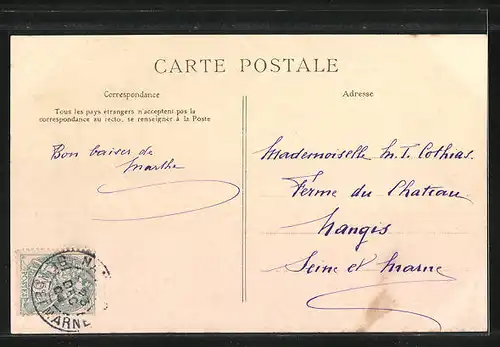 CARTE POSTALE
Correspondance
Adresse
Tous les pays étrangers n'acceptent pas la
correspondance au recto, se renseigner à la Poste
Bon baiser de
Marthe
Mademoiselle M. T. Cothias
Ferme du Chateau
Nangis
Seine et Marne
MARNE